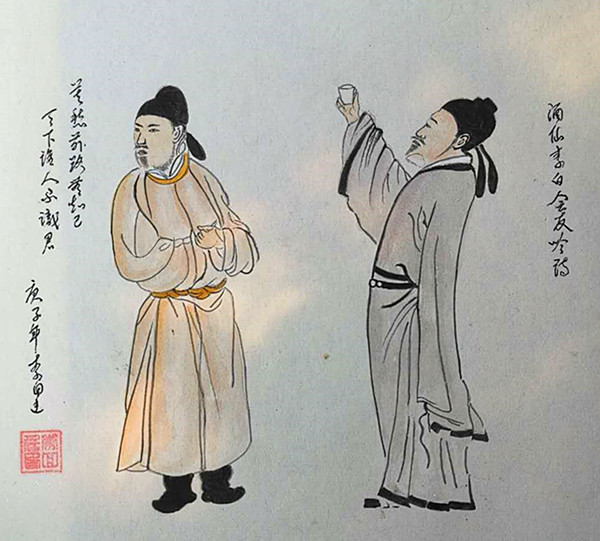 酒仙李白会友吟诗
莫愁前路無知己
天下谁人不識君
庚子年李